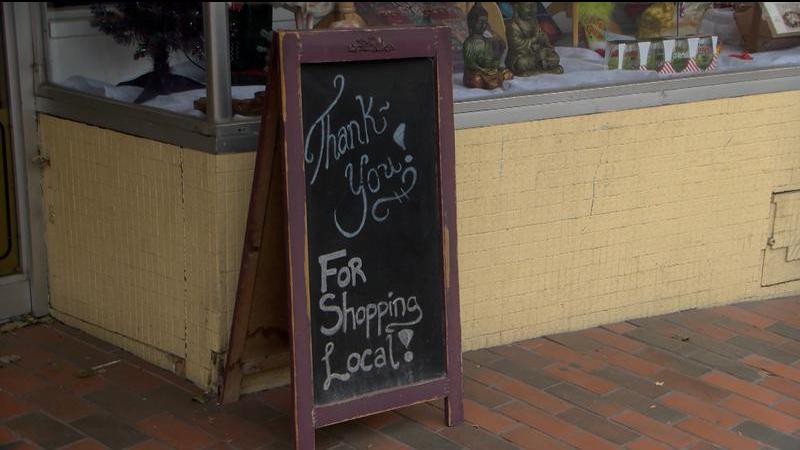 Thank
You!
For
Shopping
Local!